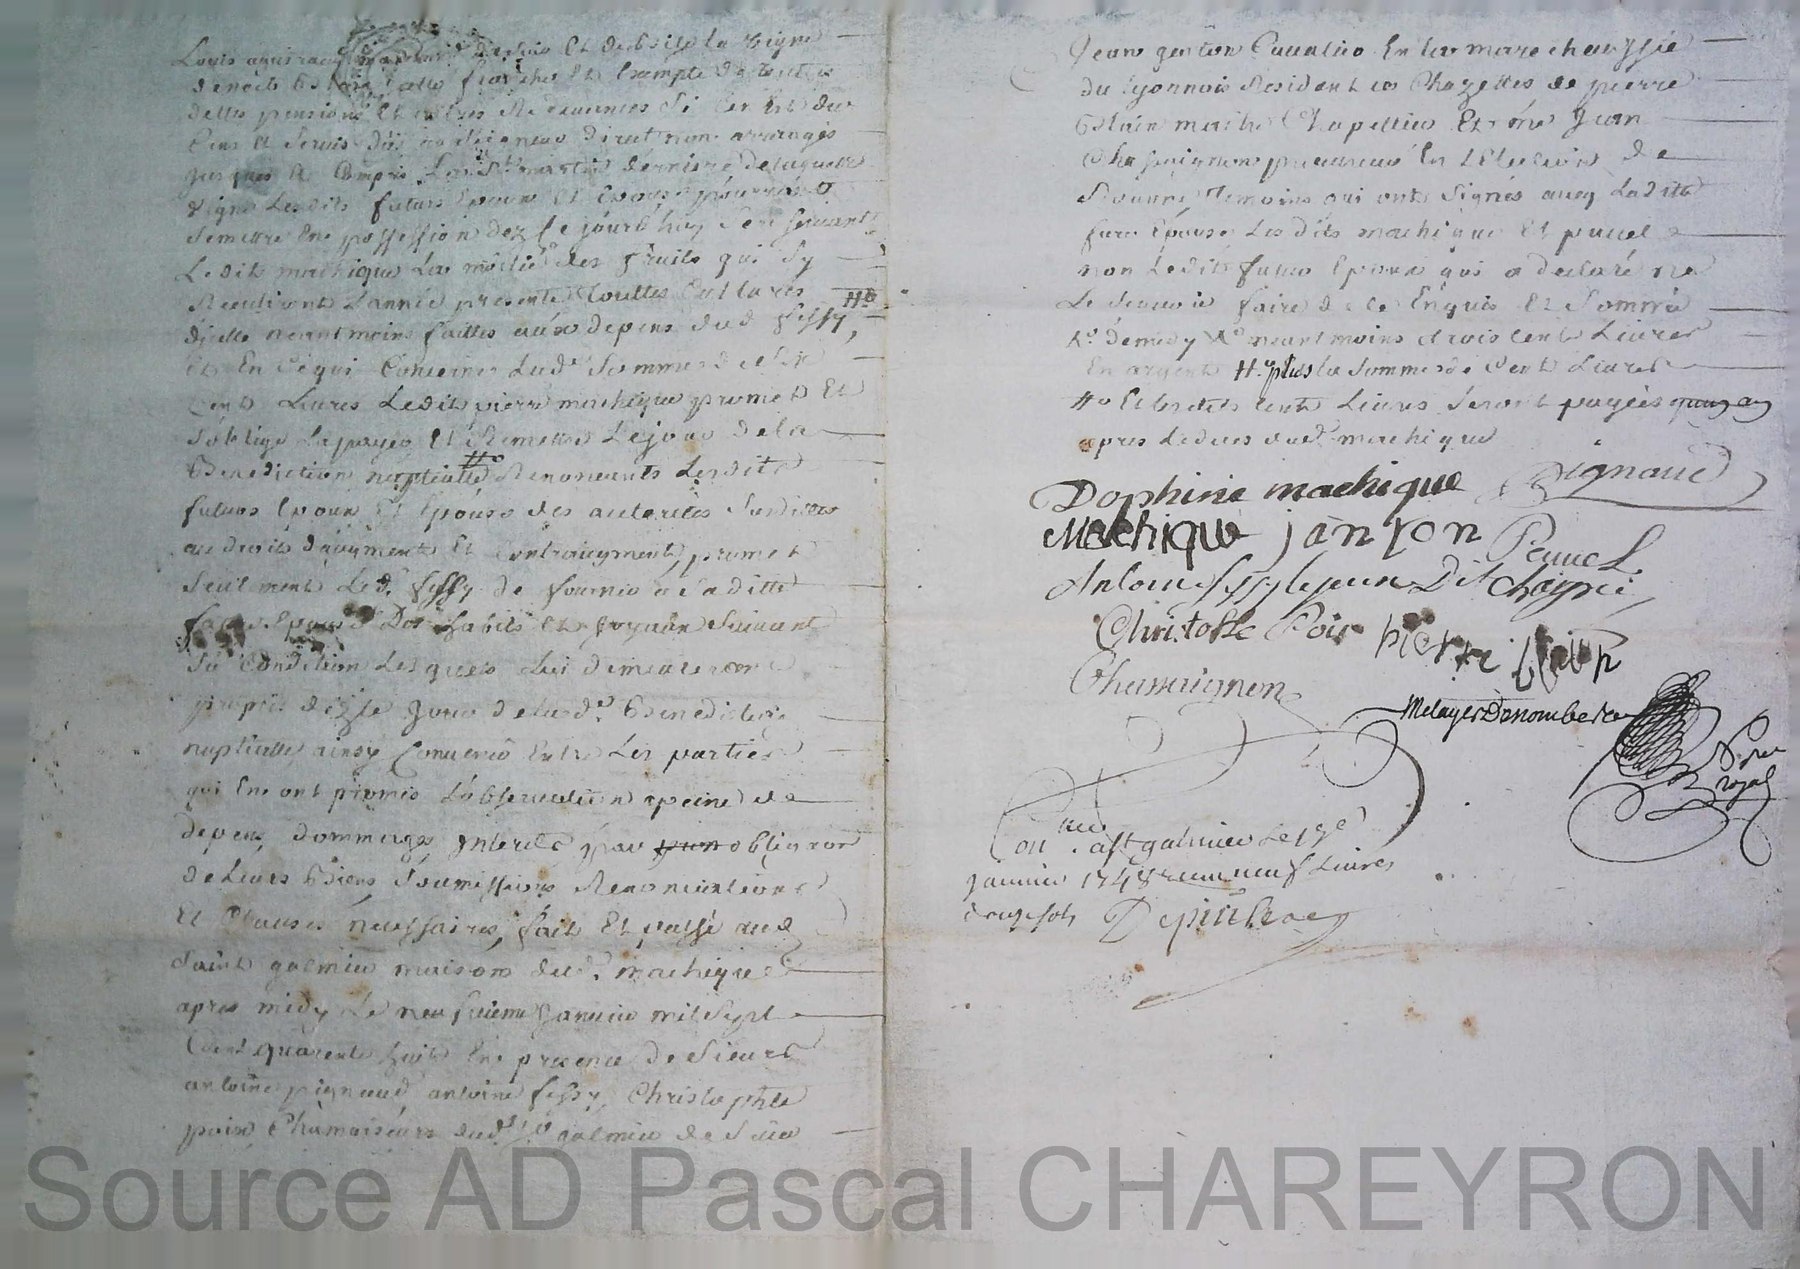 Louis de bise la vigne
franche Et Exempte de toutte
dette pensions Et autres Redevances Si Ce n'Est du
Cens Et Servis dûs au Seigneur direct non arreragés
jusques Et Compris La St martin derniere de laquelle
vigne Lesdits futurs Epoux Et Epouse pourront
Semettre En possession dez le jourd'huy Se reservant
Ledit machique La moitié des fruits qui Sy
Recuilliront L'année presente touttes Cultures #o
d'icelle neantmoins faittes aux depens dud fessy,
Et En Ce qui Concerne Lade Somme de Six
Cent Livres Ledit pierre machique promet Et
S'oblige La payer Et Remettre Le jour de la
Benediction nuptialle #o Renonceants Lesdits
futurs Epoux Et Epouse des autorités Susdittes
au droits d'augment Et Contraugment, promet
Seulement Led. fessy de fournir a Saditte
future Epouse Des habits Et joyaux Suivant
Sa Condition Lesquels Lui demeureront
propres dez le jour de lade Benediction
nuptialle ainsy Convenu Entre Les parties
qui En ont promis L'observation a peine de
depens, dommages Interets par obligaon
de Leurs Biens Soumissions Renonciations
Et Clauses necessaires, fait Et passé aud
Saint galmier maison dud. machique
apres midy Le neufvieme Janvier mil Sept
Cent quarante huit En presence de Sieurs
antoine pignaud antoine fessy, Christophle
poix Chamoiseurs dud. St galmier de Sieur
Jean janton Cavalier En La marechaussée
du Lyonnois Resident Les Chazettes de pierre
Blain maitre Chapellier Et me Jean
Chassaignon procureur En L'Election de
Roanne temoins qui ont Signés avec Laditte
future Epouse Lesdits machique Et pauel
non Ledit futur Epoux qui a declaré ne
Le Scavoir faire de ce Enquis Et Sommé
neantmoins trois Cent Livres
En argent #o plus la Somme de Cent Livres
#o Et lesdits Cent Livres Seront payées
apres Le deces dud. machique
Dophine machique Pignaud
Machique janton Pauel
Antoine fessy le jeune Dit
Christofle Poix pierre blain
Chassaignon
Metayer Denombe
No.re royal
Con. a St galmier Le 19e
janvier 1748 neuf Livres
douze sols Depinhac
Source AD Pascal CHAREYRON